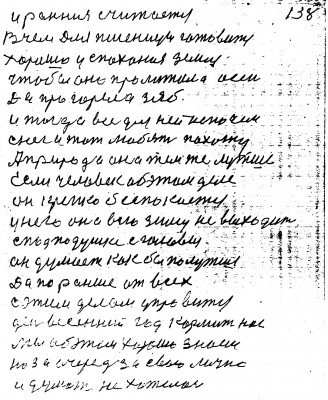 и ранния считаету 138
В чем для пшеницы готовиту
хорашо и спокойна зему
чтобы она промитала оси
Да прогорела зяб.
и тогда все для ней непочем
снег и тот любят пахоту
Априрода она тем те лутше
Если человек обэтам деле
он крепко беспокаету
у него она всю зиму не выходит
с под подушки с головы.
он думает как бы полутше
Да по ранше от всех
с этим делам управиту
ден весенний год кормит нас
Мы обэтам хорашо знаем
но за очеред за свою лично
и думат не хотелось